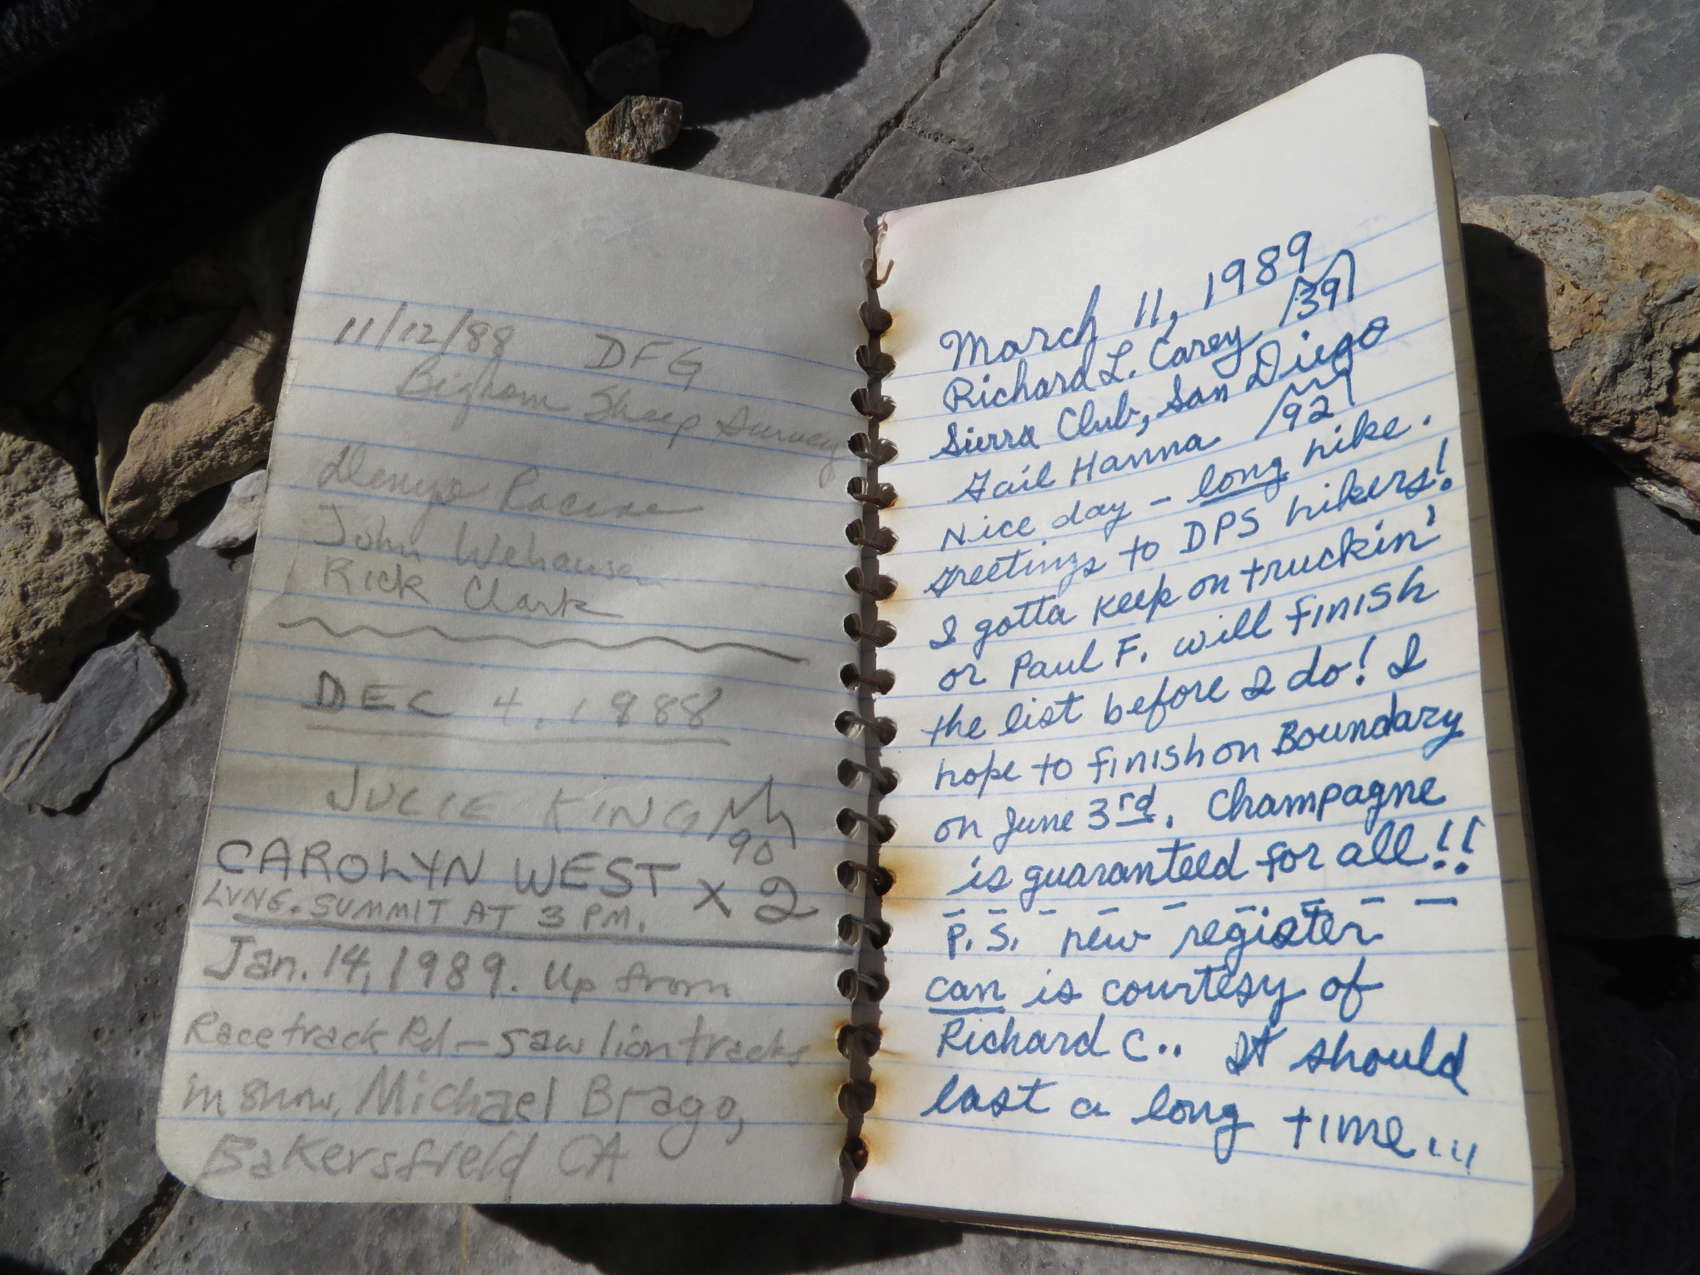 11/12/88 DFG
Bighorn Sheep Survey
Denyse Racine
John Wehausen
Rick Clark
DEC 4, 1988
JULIE KING
90
CAROLYN WEST X 2
LVNG. SUMMIT AT 3 PM.
Jan. 14, 1989. Up from
Racetrack Rd - saw lion tracks
in snow, Michael Brago,
Bakersfield CA
March 11, 1989
Richard L. Carey 139
Sierra Club, San Diego
Gail Hanna 92
Nice day - long hike.
Greetings to DPS hikers!
I gotta keep on truckin'
or Paul F. will finish
the list before I do! I
hope to finish on Boundary
on June 3rd. Champagne
is guaranteed for all!!
P.S. new register
can is courtesy of
Richard C.. It should
last a long time...